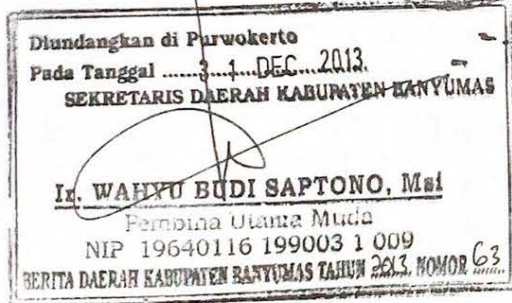 Diundangkan di Purwokerto
Pada Tanggal ......3 1 DEC 2013.
SEKRETARIS DAERAH KABUPATEN BANYUMAS
Ir. WAHYU BUDI SAPTONO, Msi
Pembina Utama Muda
NIP 19640116 199003 1 009
BERITA DAERAH KABUPATEN BANYUMAS TAHUN 2013 NOMOR 63